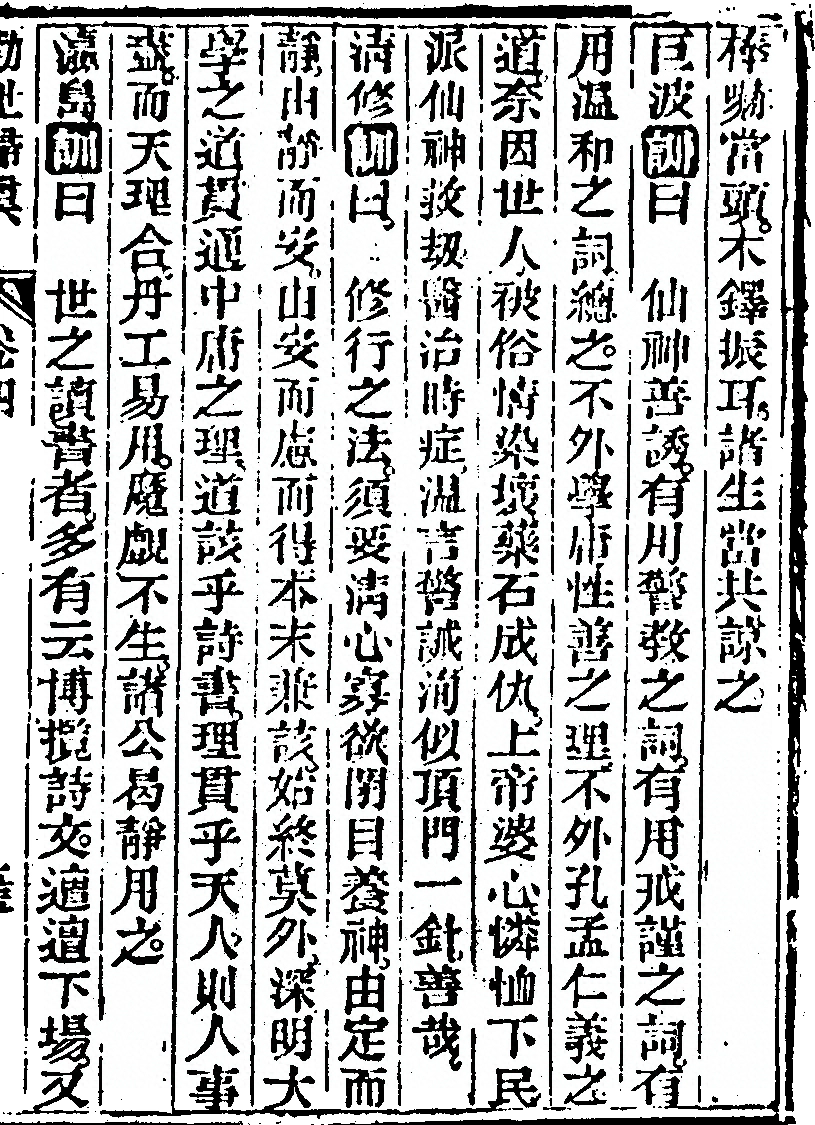 棒喝當頭。木鐸振耳。諸生當共諒之
巨波訓曰　仙神善誘。有用警教之詞。有用戒謹之詞。有
用溫和之詞。總之。不外學庸性善之理。不外孔孟仁義之
道。奈因世人被俗情染壞。藥石成仇。上帝婆心。憐恤下民
派仙神救劫。醫治時症。溫言警誡。洵似頂門一針。善哉。
清修訓曰。　修行之法。須要清心寡欲。閉目養神。由定而
靜。由靜而安。由安而慮而得。本末兼該。始終莫外。深明大
學之道。貫通中庸之理。道該乎詩書。理貫乎天人。則人事
盡。而天理合。丹工易用。魔覷不生。諸公曷靜用之。
瀛島訓曰　世之讀書者。多有云博攬詩文。遍遭下場。又
卷四